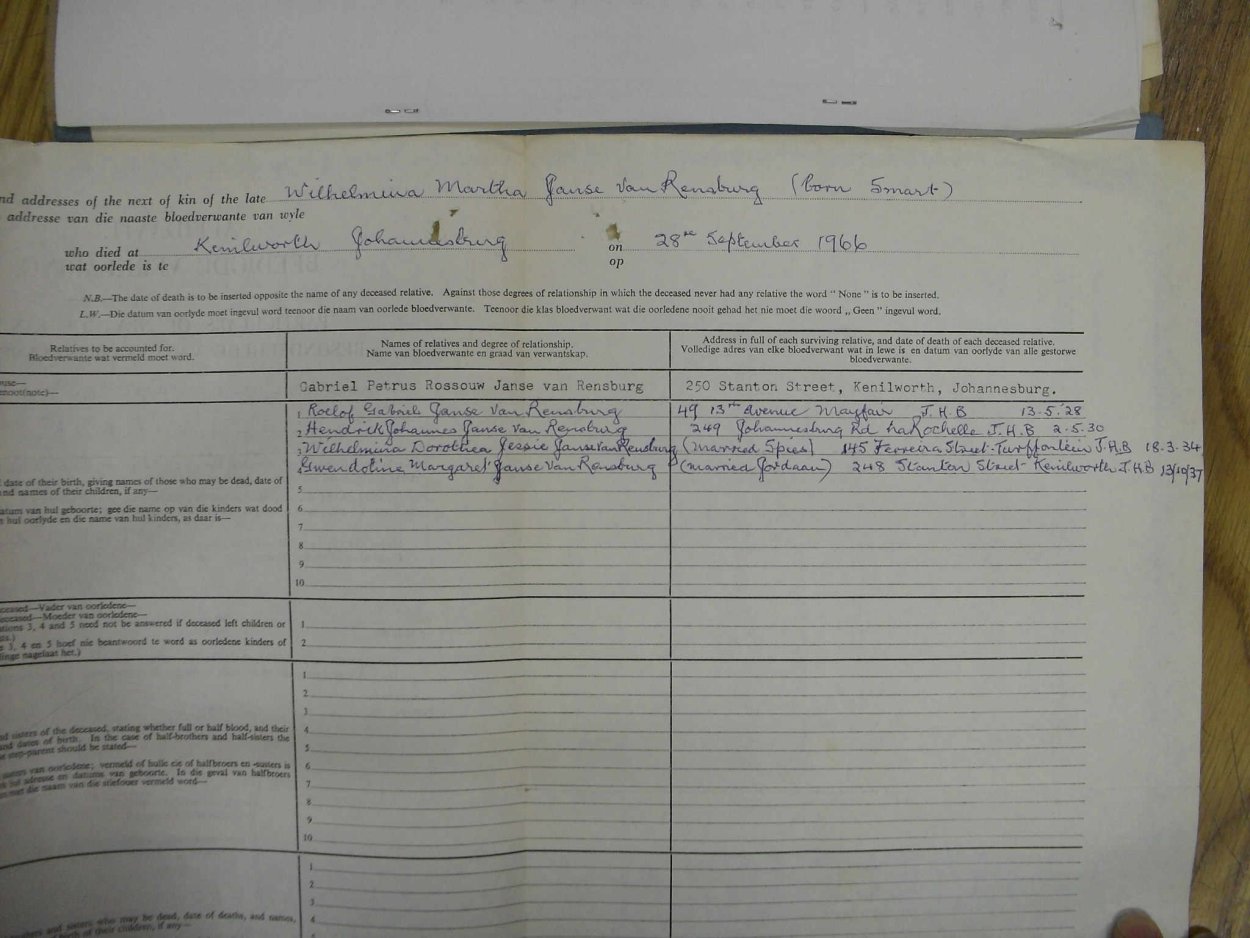 nd addresses of the next of kin of the late Wilhelmina Martha Janse Van Rensburg (born Smart)
addresse van die naaste bloedverwante van wyle
who died at Kenilworth Johannesburg on 28th September 1966
wat oorlede is te op
N.B.—The date of death is to be inserted opposite the name of any deceased relative. Against those degrees of relationship in which the deceased never had any relative the word " None " is to be inserted.
L.W.—Die datum van oorlyde moet ingevul word teenoor die naam van oorlede bloedverwante. Teenoor die klas bloedverwant wat die oorledene nooit gehad het nie moet die woord „ Geen " ingevul word.
Relatives to be accounted for.
Bloedverwante wat vermeld moet word.
Names of relatives and degree of relationship.
Name van bloedverwante en graad van verwantskap.
Address in full of each surviving relative, and date of death of each deceased relative.
Volledige adres van elke bloedverwant wat in lewe is en datum van oorlyde van alle gestorwe
bloedverwante.
use—
noot(note)—
Gabriel Petrus Rossouw Janse van Rensburg 250 Stanton Street, Kenilworth, Johannesburg.
1 Roelof Gabriel Janse Van Rensburg 49 13th Avenue Mayfair J.H.B 13.5.'28
2 Hendrick Johannes Janse Van Rensburg 249 Johannesburg Rd LaRochelle J.H.B 2.5.30
3 Wilhelmina Dorothea Jessie Janse Van Rensburg (Married Spies) 145 Ferreira Street Turffontein J.H.B 18.3.34
Gwendoline Margaret Janse Van Rensburg (married Jordaan) 248 Stanton Street Kenilworth J.H.B 13/10/37
date of their birth, giving names of those who may be dead, date of
nd names of their children, if any—
atum van hul geboorte; gee die name op van die kinders wat dood
hul oorlyde en die name van hul kinders, as daar is—
5
6
7
8
9
10
ceased—Vader van oorledene—
eceased—Moeder van oorledene—
tions 3, 4 and 5 need not be answered if deceased left children or
s 3, 4 en 5 hoef nie beantwoord te word as oorledene kinders of
linge nagelaat het.)
1
2
1
2
3
4
5
6
7
8
9
10
nd sisters of the deceased, stating whether full or half blood, and their
and dates of birth. In the case of half-brothers and half-sisters the
step-parent should be stated—
susters van oorledene; vermeld of hulle eie of halfbroers en -susters is
adresse en datums van geboorte. In die geval van halfbroers
met die naam van die stiefouer vermeld word—
1
2
3
4
who may be dead, date of deaths, and names,
birth of their children, if any—